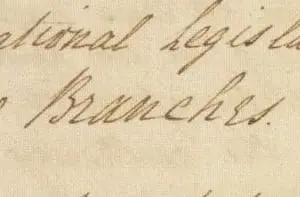 ational Legisla
Branches.